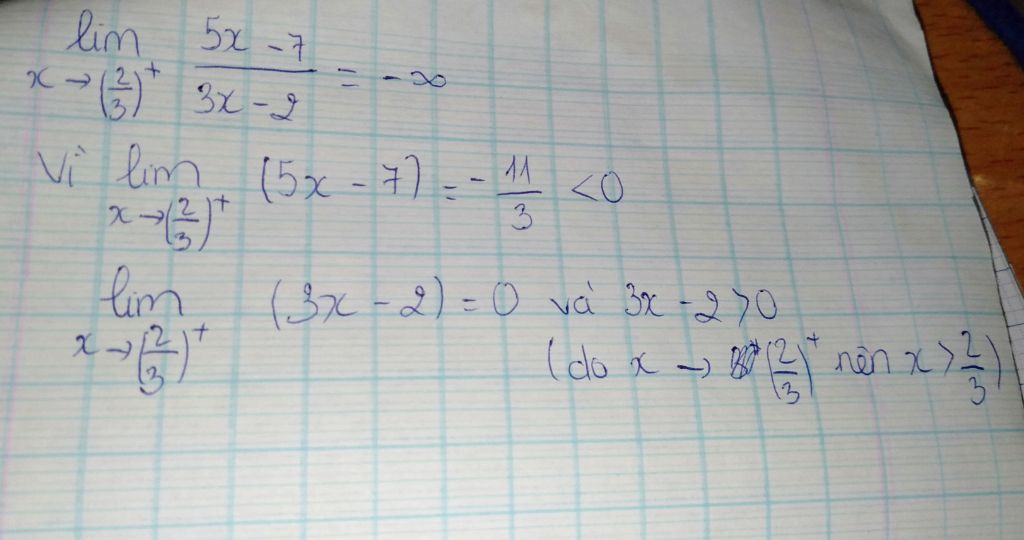 lim x → (2/3)⁺ (5x - 7)/(3x - 2) = - ∞
Vì lim x → (2/3)⁺ (5x - 7) = - 11/3 < 0
lim x → (2/3)⁺ (3x - 2) = 0 và 3x - 2 > 0
(do x → (2/3)⁺ nên x > 2/3)